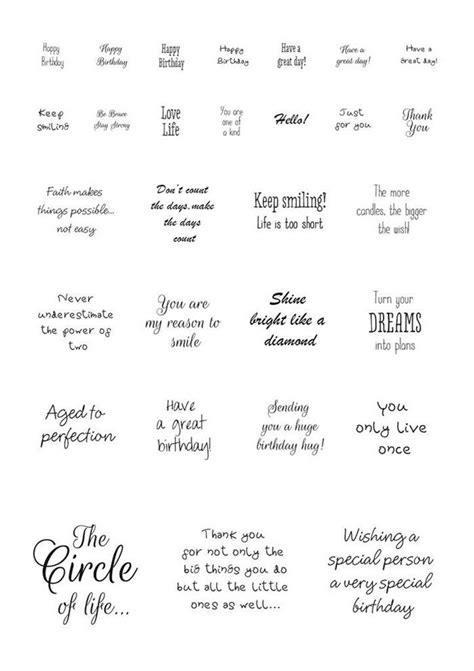 Happy
Birthday
Happy
Birthday
Happy
Birthday
Happy
Birthday
Have a
great day!
Have a
great day!
Have a
great day!
Keep
smiling
Be Brave
Stay Strong
Love
Life
You are
one of
a kind
Hello!
Just
for you
Thank
You
Faith makes
things possible...
not easy
Don't count
the days, make
the days
count
Keep smiling!
Life is too short
The more
candles, the bigger
the wish!
Never
underestimate
the power of
two
You are
my reason to
smile
Shine
bright like a
diamond
Turn your
DREAMS
into plans
Aged to
perfection
Have
a great
birthday!
Sending
you a huge
birthday hug!
You
only live
once
The
Circle
of life...
Thank you
for not only the
big things you do
but all the little
ones as well...
Wishing a
special person
a very special
birthday